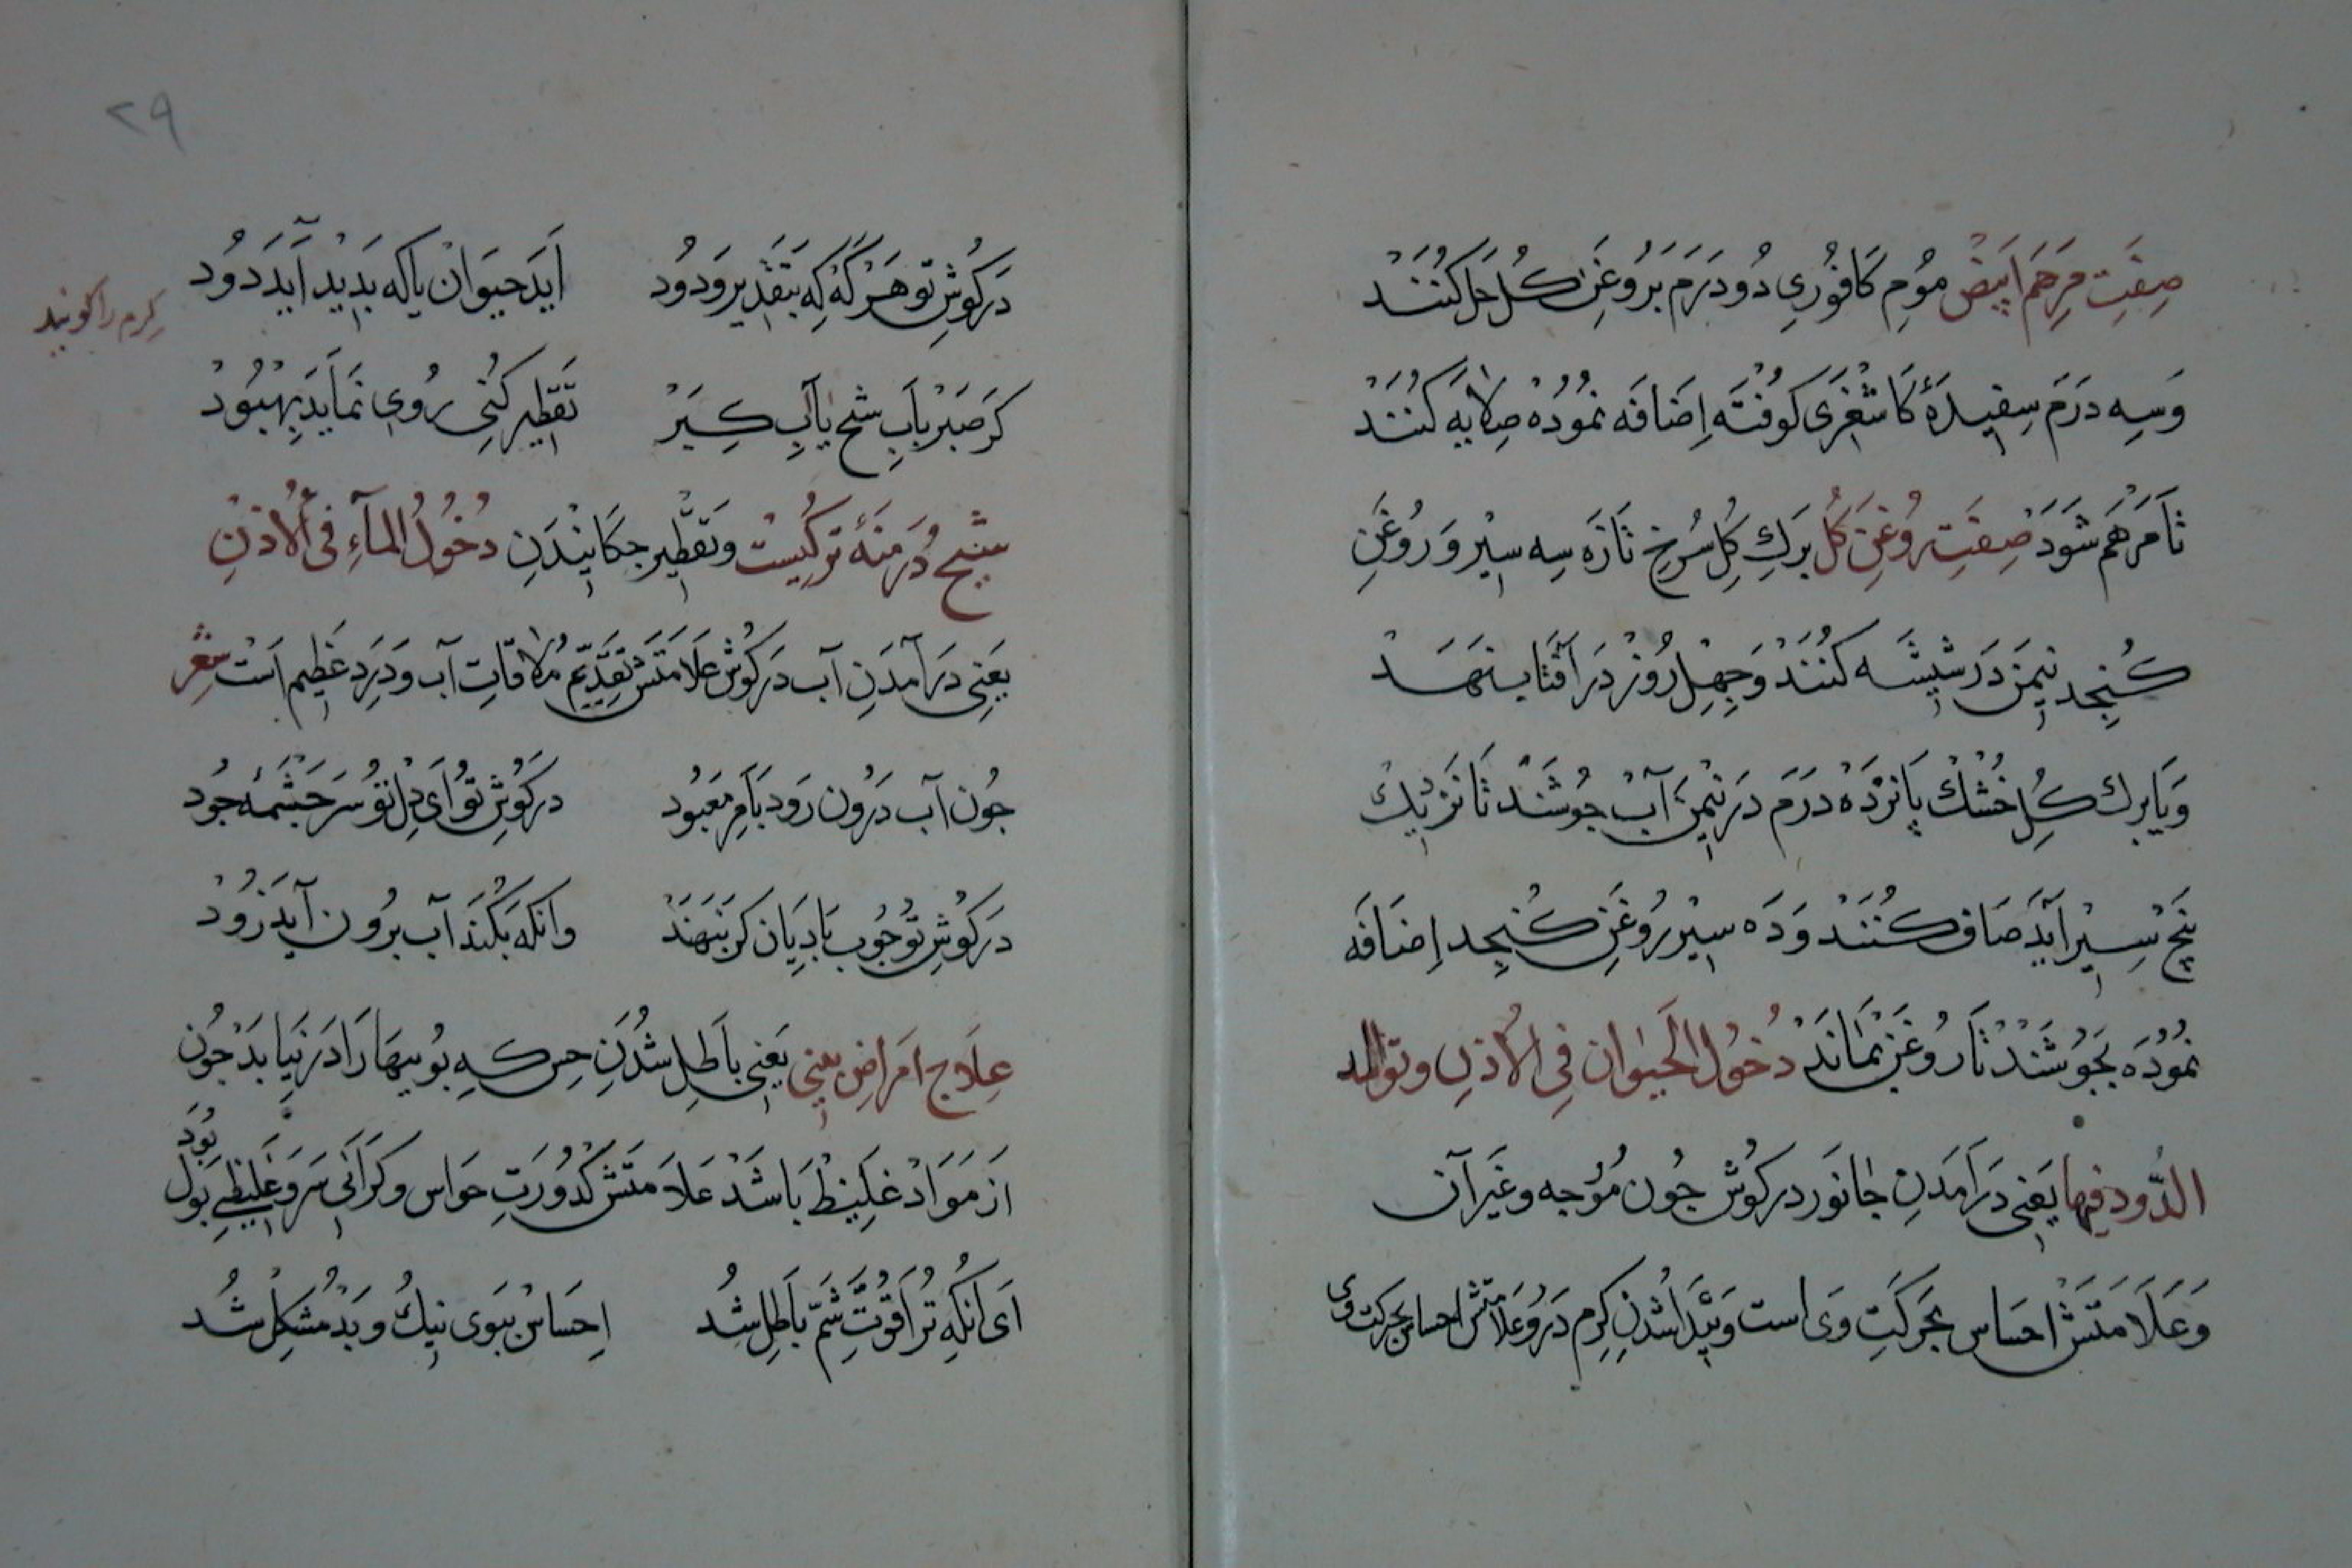 صِفَتِ مَرهَم اَبیَض مُومِ کَافُوری دُو دَرَم بَرُوغَنِ کُل حَل کُنَند
وَسِه دَرَم سِفیدَۀ کَاشغَری کوُفتَه اِضَافَه نمُودُه صِلایَه کُنَند
تَا مَرهَم شَوَد صِفَتِ رُوغَنِ کُل بَرکِ کُلِ سُرخِ تَازَه سِه سیر وَ رُوغَنِ
کُنجِد نیمَن دَر شیشَه کُنَند وَ جِهِل رُوز دَر آفتَاب نهَند
وَیَا برک کُلِ خُشک پَانزدَه دَرَم دَر نیمَن آب جُوشَند تَا نَزدیک
پَنج سیر آیَد صَاف کُنَند وَ دَه سیر رُوغَنِ کُنجِد اِضَافَه
نمُودَه بَجُوشَند تَا رُوغَن بَمَاند دُخُولُ الحَیَوان فِی الاُذنِ وتولد
الدُّود فیها یَعنی دَرآمَدَنِ جانوَر در کوُش جُون مُوُجه وغَیر آن
وَعَلَامَتَش احسَاس بَحَرکَتِ وَی است وَ پَیدَا شُدنِ کِرم دَرُو وَعَلَامتَش احساس بحرکت وی
۲۹
دَرکوُشِ تو هَر کَه کِه بتَقدیر وَدوُد
اَیَد حَیوَان یا که بَدید آیَد دوُد
کِرم را کویند
کَر صَبر بَآبِ شِیح یا آبِ کِبَر
تَقطیر کُنی رُوی نَمَایَد بِهبُود
شیح دَرمَنَۀ ترکیست وتَقطیر جکَانیدَن دُخُولُ المآءِ فی الاُذُنِ
یَعنی دَرآمَدَنِ آب دَرکوُش عَلَامَتَش تَقَدّیم مُلاقاتِ آب وَ دَردِ عَظیم اَست شعر
جُون آب دَرُون رَود بَامِر مَعبُود
درکوُشِ توُ اَی دِل توُ سَر جَشمَۀ جُود
دَرکوُشِ توُ جُوبِ بَادِیَان کَر بَنهَند
وانکَه بَکُنَند آب بِرُون آیَد زُود
عِلَاج اَمرَاضِ بینی یَعنی بَاطِل شُدَنِ حِس کِه بُویهَا رَا دَرنَیَابَد جُون
اَز مَوَادِ غلیظ بَاشَد عَلَامَتَش کُدُورَتِ حَوَاس وکرَانی سَر وَ غَلیظی بَول
بُوَد
اَی آنکِه تُرَا قُوَّتِ شَمّ بَاطِل شُد
اِحسَاس بَبَوی نیکُ وبَد مُشکِل شُد